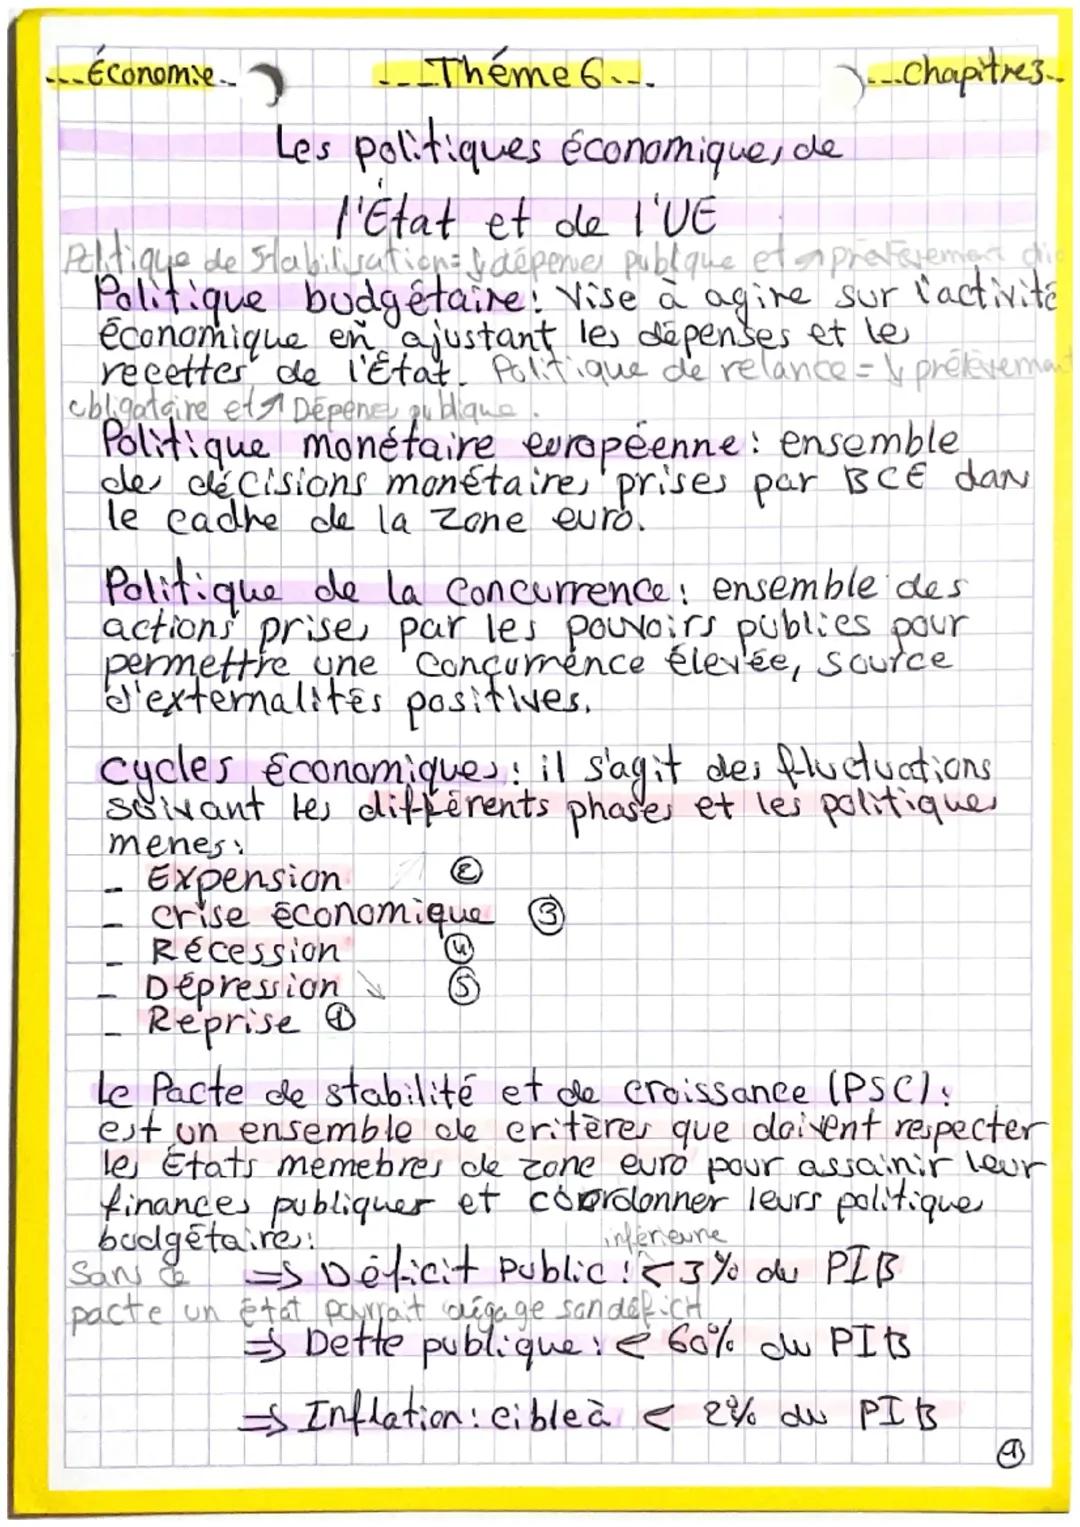 Économie
Théme 6
Chapitre 3
Les politiques économiques de
l'État et de l'UE
Politique de stabilisation = ↓ dépenses publique et ↗ prélèvement
Politique budgétaire : Vise à agire sur l'activité
économique en ajustant les dépenses et les
recettes de l'État. Politique de relance = ↓ prélèvement
obligataire et ↗ Dépenes publique.
Politique monétaire européenne : ensemble
des décisions monétaires prises par BCE dans
le cadre de la zone euro.
Politique de la concurrence : ensemble des
actions prises par les pouvoirs publics pour
permettre une concurrence élevée, source
d'externalités positives.
cycles économiques : il s'agit des fluctuations
suivant les différents phases et les politiques
menes :
- Expension ②
- crise économique ③
- Récession ④
- Dépression ↘ ⑤
- Reprise ①
Le Pacte de stabilité et de croissance (PSC) :
est un ensemble de critères que doivent respecter
les États memebres de zone euro pour assainir leur
finances publiques et coordonner leurs politiques
budgétaires :
inférieure
⇒ Déficit public : < 3% du PIB
Sans ce
pacte un état pourrait dégage son déficit
⇒ Dette publique : < 60% du PIB
⇒ Inflation : cible à < 2% du PIB
①